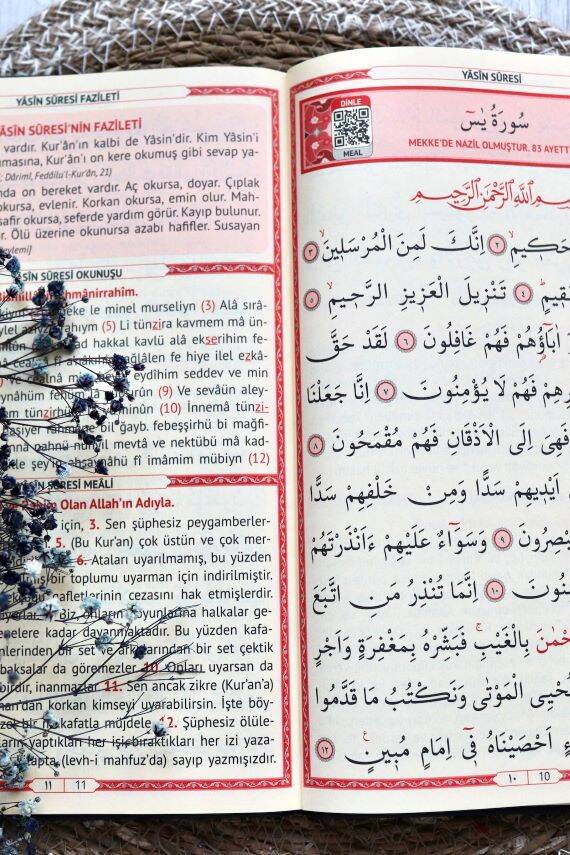 YÂSÎN SÛRESİ FAZİLETİ
YÂSÎN SÛRESİ'NİN FAZİLETİ
vardır. Kur'ân'ın kalbi de Yâsîn'dir. Kim Yâsîn'i
Kur'ânı on kere okumuş gibi sevap ya-
Dârimî, Fedâilu'l-Kur'ân, 21)
on bereket vardır. Aç okursa, doyar. Çıplak
okursa, evlenir. Korkan okursa, emin olur. Mah-
okursa, seferde yardım görür. Kayıp bulunur.
Ölü üzerine okunursa azabı hafifler. Susayan
SÛRESİ OKUNUŞU
le minel murseliyn (3) Alâ sırâ-
(5) Li tünzira kavmem mâ ün-
hakkal kavlü alâ ekserihim fe-
fe hiye ilel ezkâ-
eydîhim seddev ve min
(9) Ve sevâün aley-
(10) İnnemâ tünzi-
bil ğayb. febeşşirhü bi mağfi-
mevtâ ve nektübü mâ kad-
fî imâmim mübiyn (12)
YÂSÎN SÛRESİ MEÂLİ
Olan Allah'ın Adıyla.
için, 3. Sen şüphesiz peygamberler-
5. (Bu Kur'an) çok üstün ve çok mer-
6. Ataları uyarılmamış, bu yüzden
bir toplumu uyarman için indirilmiştir.
gafletlerinin cezasını hak etmişlerdir.
Biz, onların boyunlarına halkalar ge-
kadar dayanmaktadır. Bu yüzden kafa-
bir set ve arkalarından bir set çektik
baksalar da göremezler. 10. Onları uyarsan da
birdir, inanmazlar. 11. Sen ancak zikre (Kur'an'a)
korkan kimseyi uyarabilirsin. İşte böy-
bir mükafatla müjdele. 12. Şüphesiz ölüle-
yaptıkları her işi, bıraktıkları her izi yaza-
(levh-i mahfuz'da) sayıp yazmışızdır.
١١ 11
YÂSÎN SÛRESİ
DİNLE
MEAL
سُورَةُ يٰسٓ
MEKKE'DE NAZİL OLMUŞTUR. 83 AYETT
اللّٰهِ الرَّحْمٰنِ الرَّحِيمِ
٢ اِنَّكَ لَمِنَ الْمُرْسَلِينَ ٣
٤ تَنْزِيلَ الْعَزِيزِ الرَّحِيمِ ٥
اٰبَٓاؤُهُمْ فَهُمْ غَافِلُونَ ٦ لَقَدْ حَقَّ
فَهُمْ لَا يُؤْمِنُونَ ٧ اِنَّا جَعَلْنَا
فَهِىَ اِلَى الْاَذْقَانِ فَهُمْ مُقْمَحُونَ ٨
اَيْدِيهِمْ سَدًّا وَمِنْ خَلْفِهِمْ سَدًّا
٩ وَسَوَٓاءٌ عَلَيْهِمْ ءَاَنْذَرْتَهُمْ
١٠ اِنَّمَا تُنْذِرُ مَنِ اتَّبَعَ
بِالْغَيْبِ فَبَشِّرْهُ بِمَغْفِرَةٍ وَاَجْرٍ
الْمَوْتٰى وَنَكْتُبُ مَا قَدَّمُوا
اَحْصَيْنَاهُ فِٓى اِمَامٍ مُبِينٍ ١٢
١٠ 10